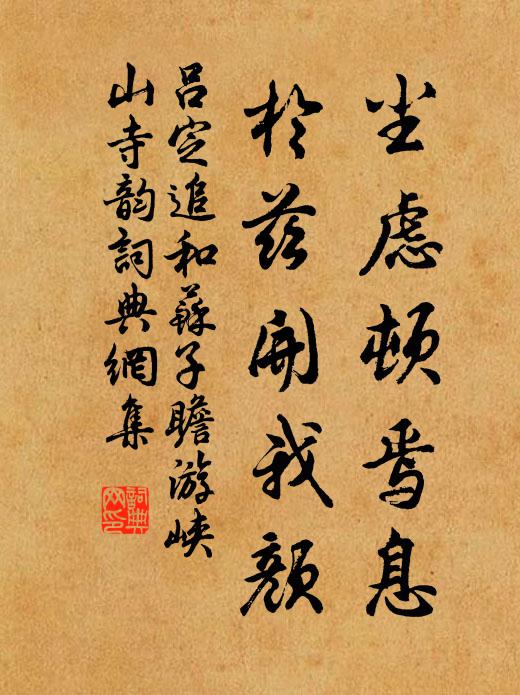 尘虑顿焉息
於兹开我颜
吕定追和苏子瞻游峡
山寺韵词典网集
詞典
网印